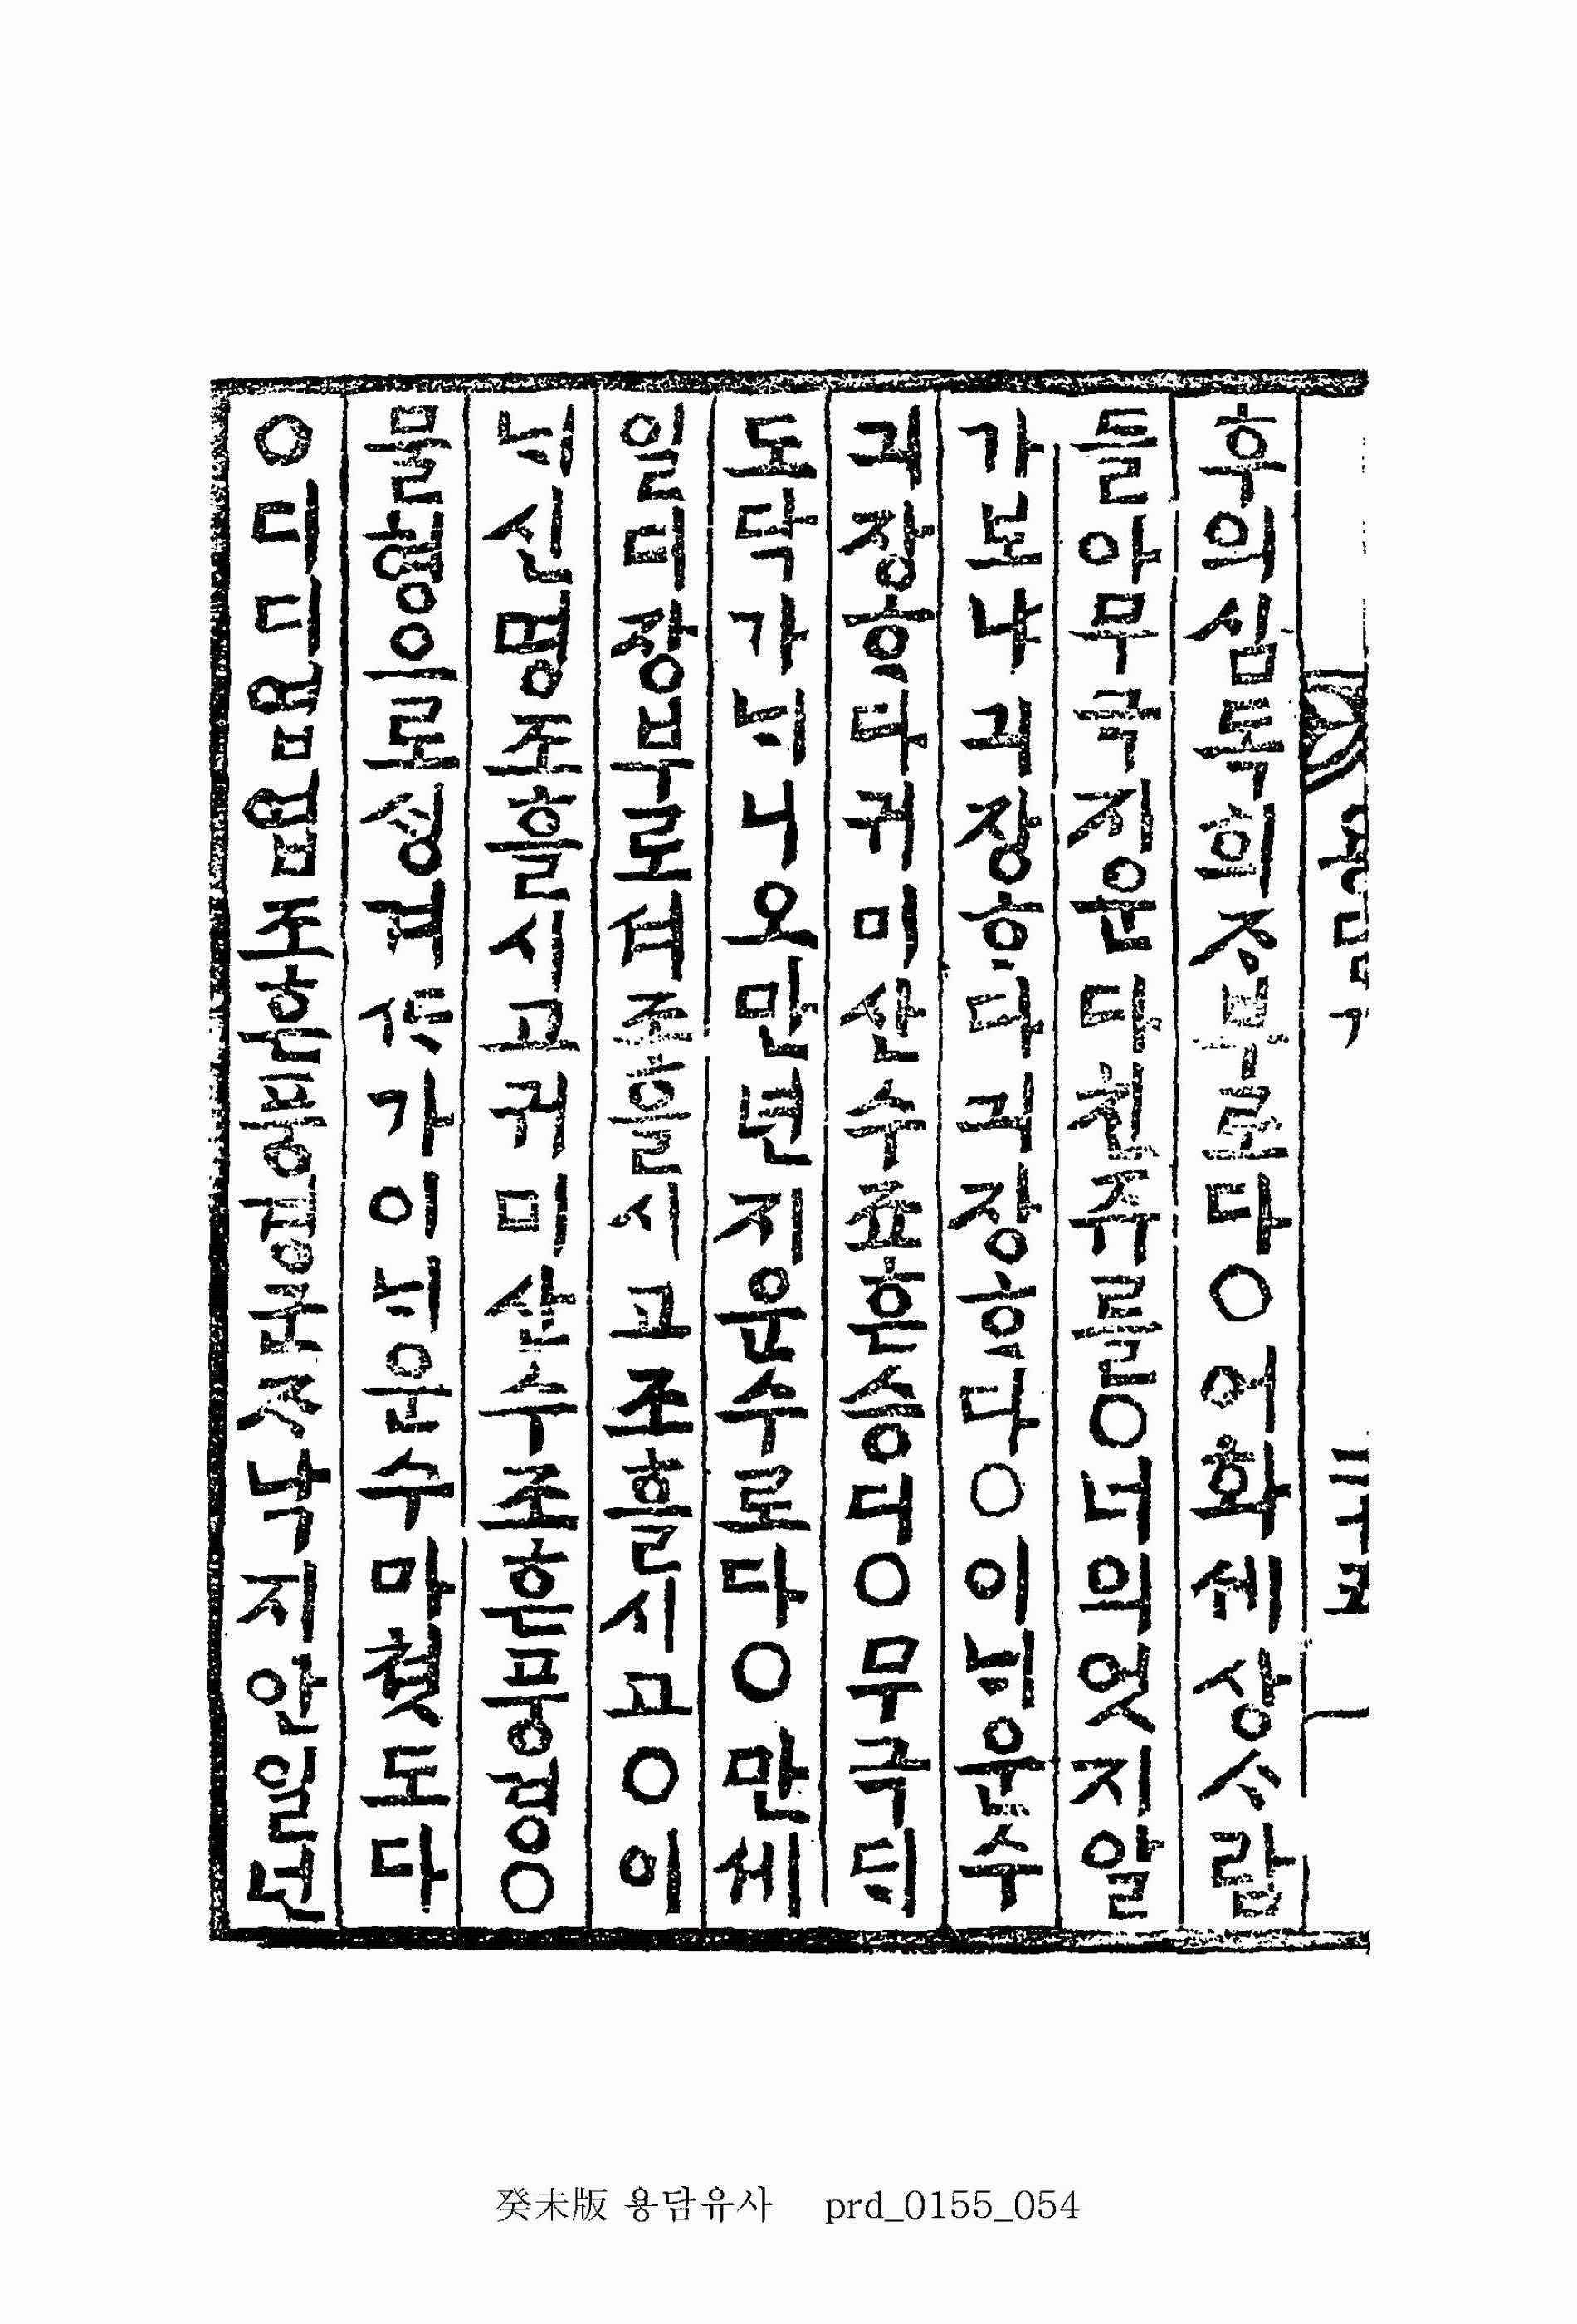 후의심독희ᄌᆞ부로다○어화셰상ᄉᆞ람
들아무극지운다친쥬를○너의엇지알
가보냐긔장ᄒᆞ다긔장ᄒᆞ다○이ᄂᆡ운수
긔장ᄒᆞ다귀미산수죠흔승디○무극ᄃᆡ
도닥가ᄂᆡ니오만년지운수로다○만셰
일디장부로셔조흘시고조흘시고○이
ᄂᆡ신명조흘시고귀미산수조흔풍경○
물형으로싱겨ᄯᅡ가이ᄂᆡ운수마쳣도다
○디디엽엽조흔풍경군ᄌᆞ낙지안일넌
癸未版 용담유사 prd_0155_054